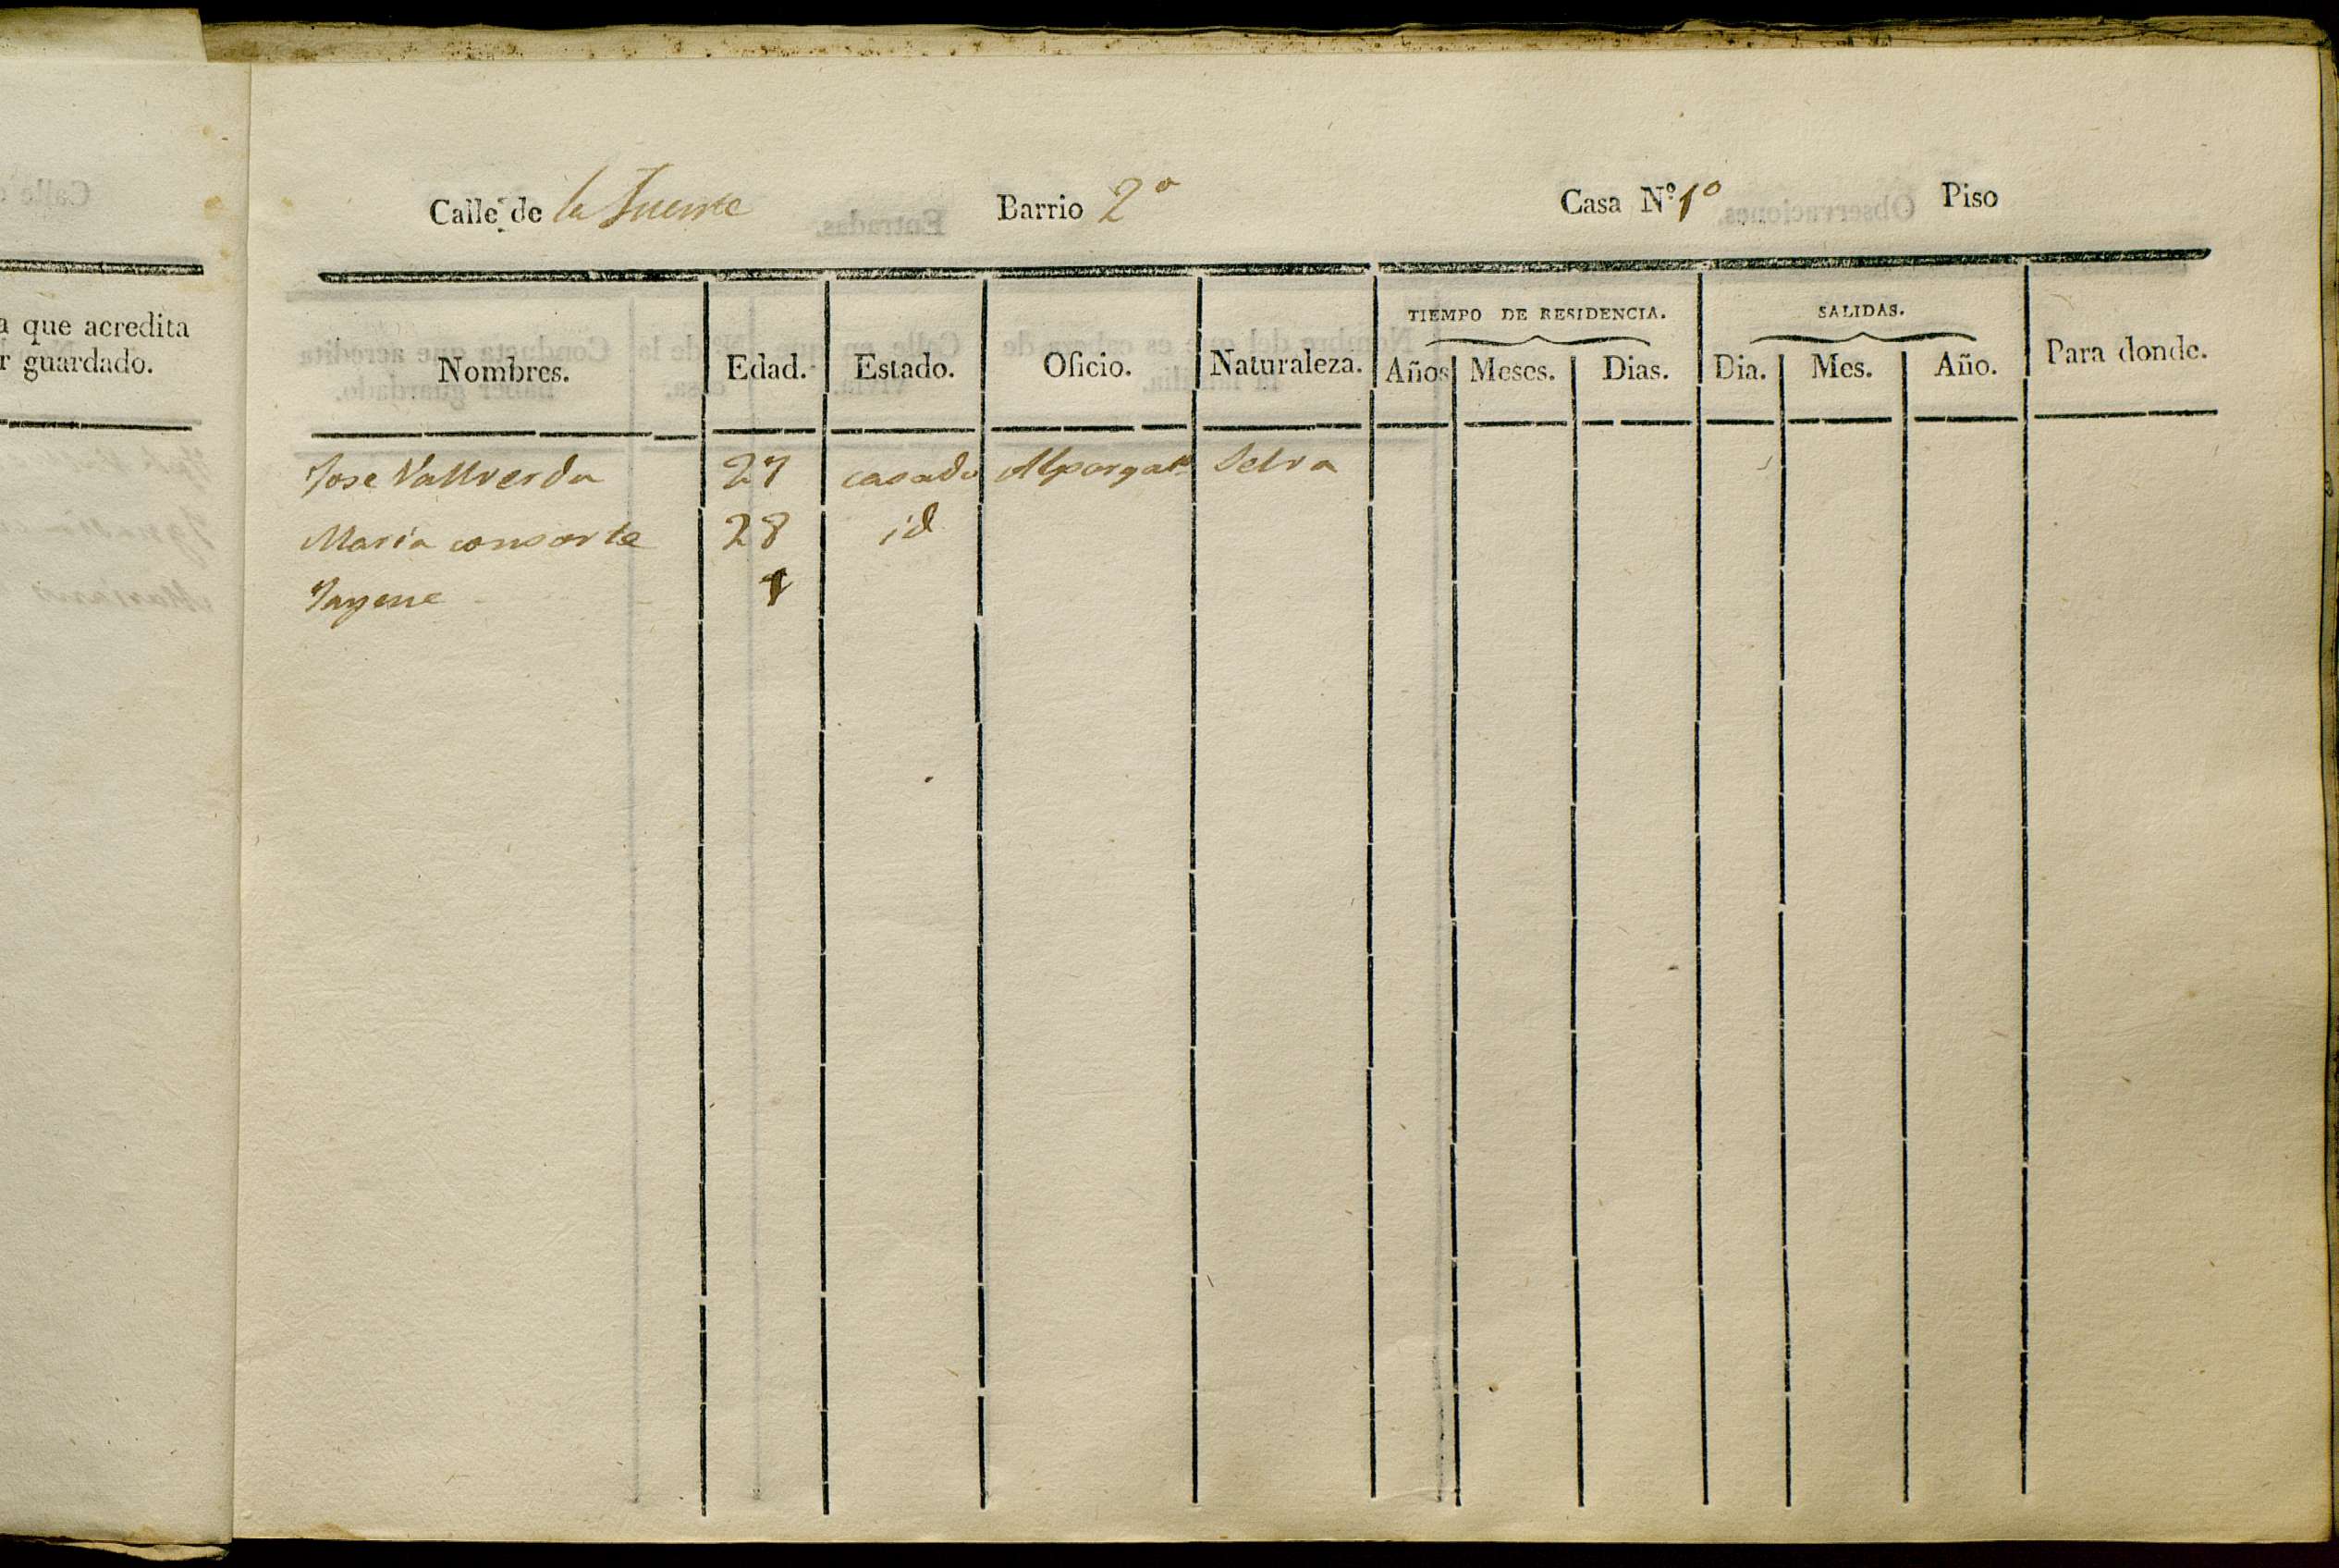 a que acredita
r guardado.
Calle de la Fuente Barrio 2º Casa Nº 1º Piso
TIEMPO DE RESIDENCIA. SALIDAS.
Nombres. Edad. Estado. Oficio. Naturaleza. Años Meses. Dias. Dia. Mes. Año. Para donde.
Jose Vallverdu 27 casado Alpargatº Selva
Maria consorte 28 id
Jayme 1